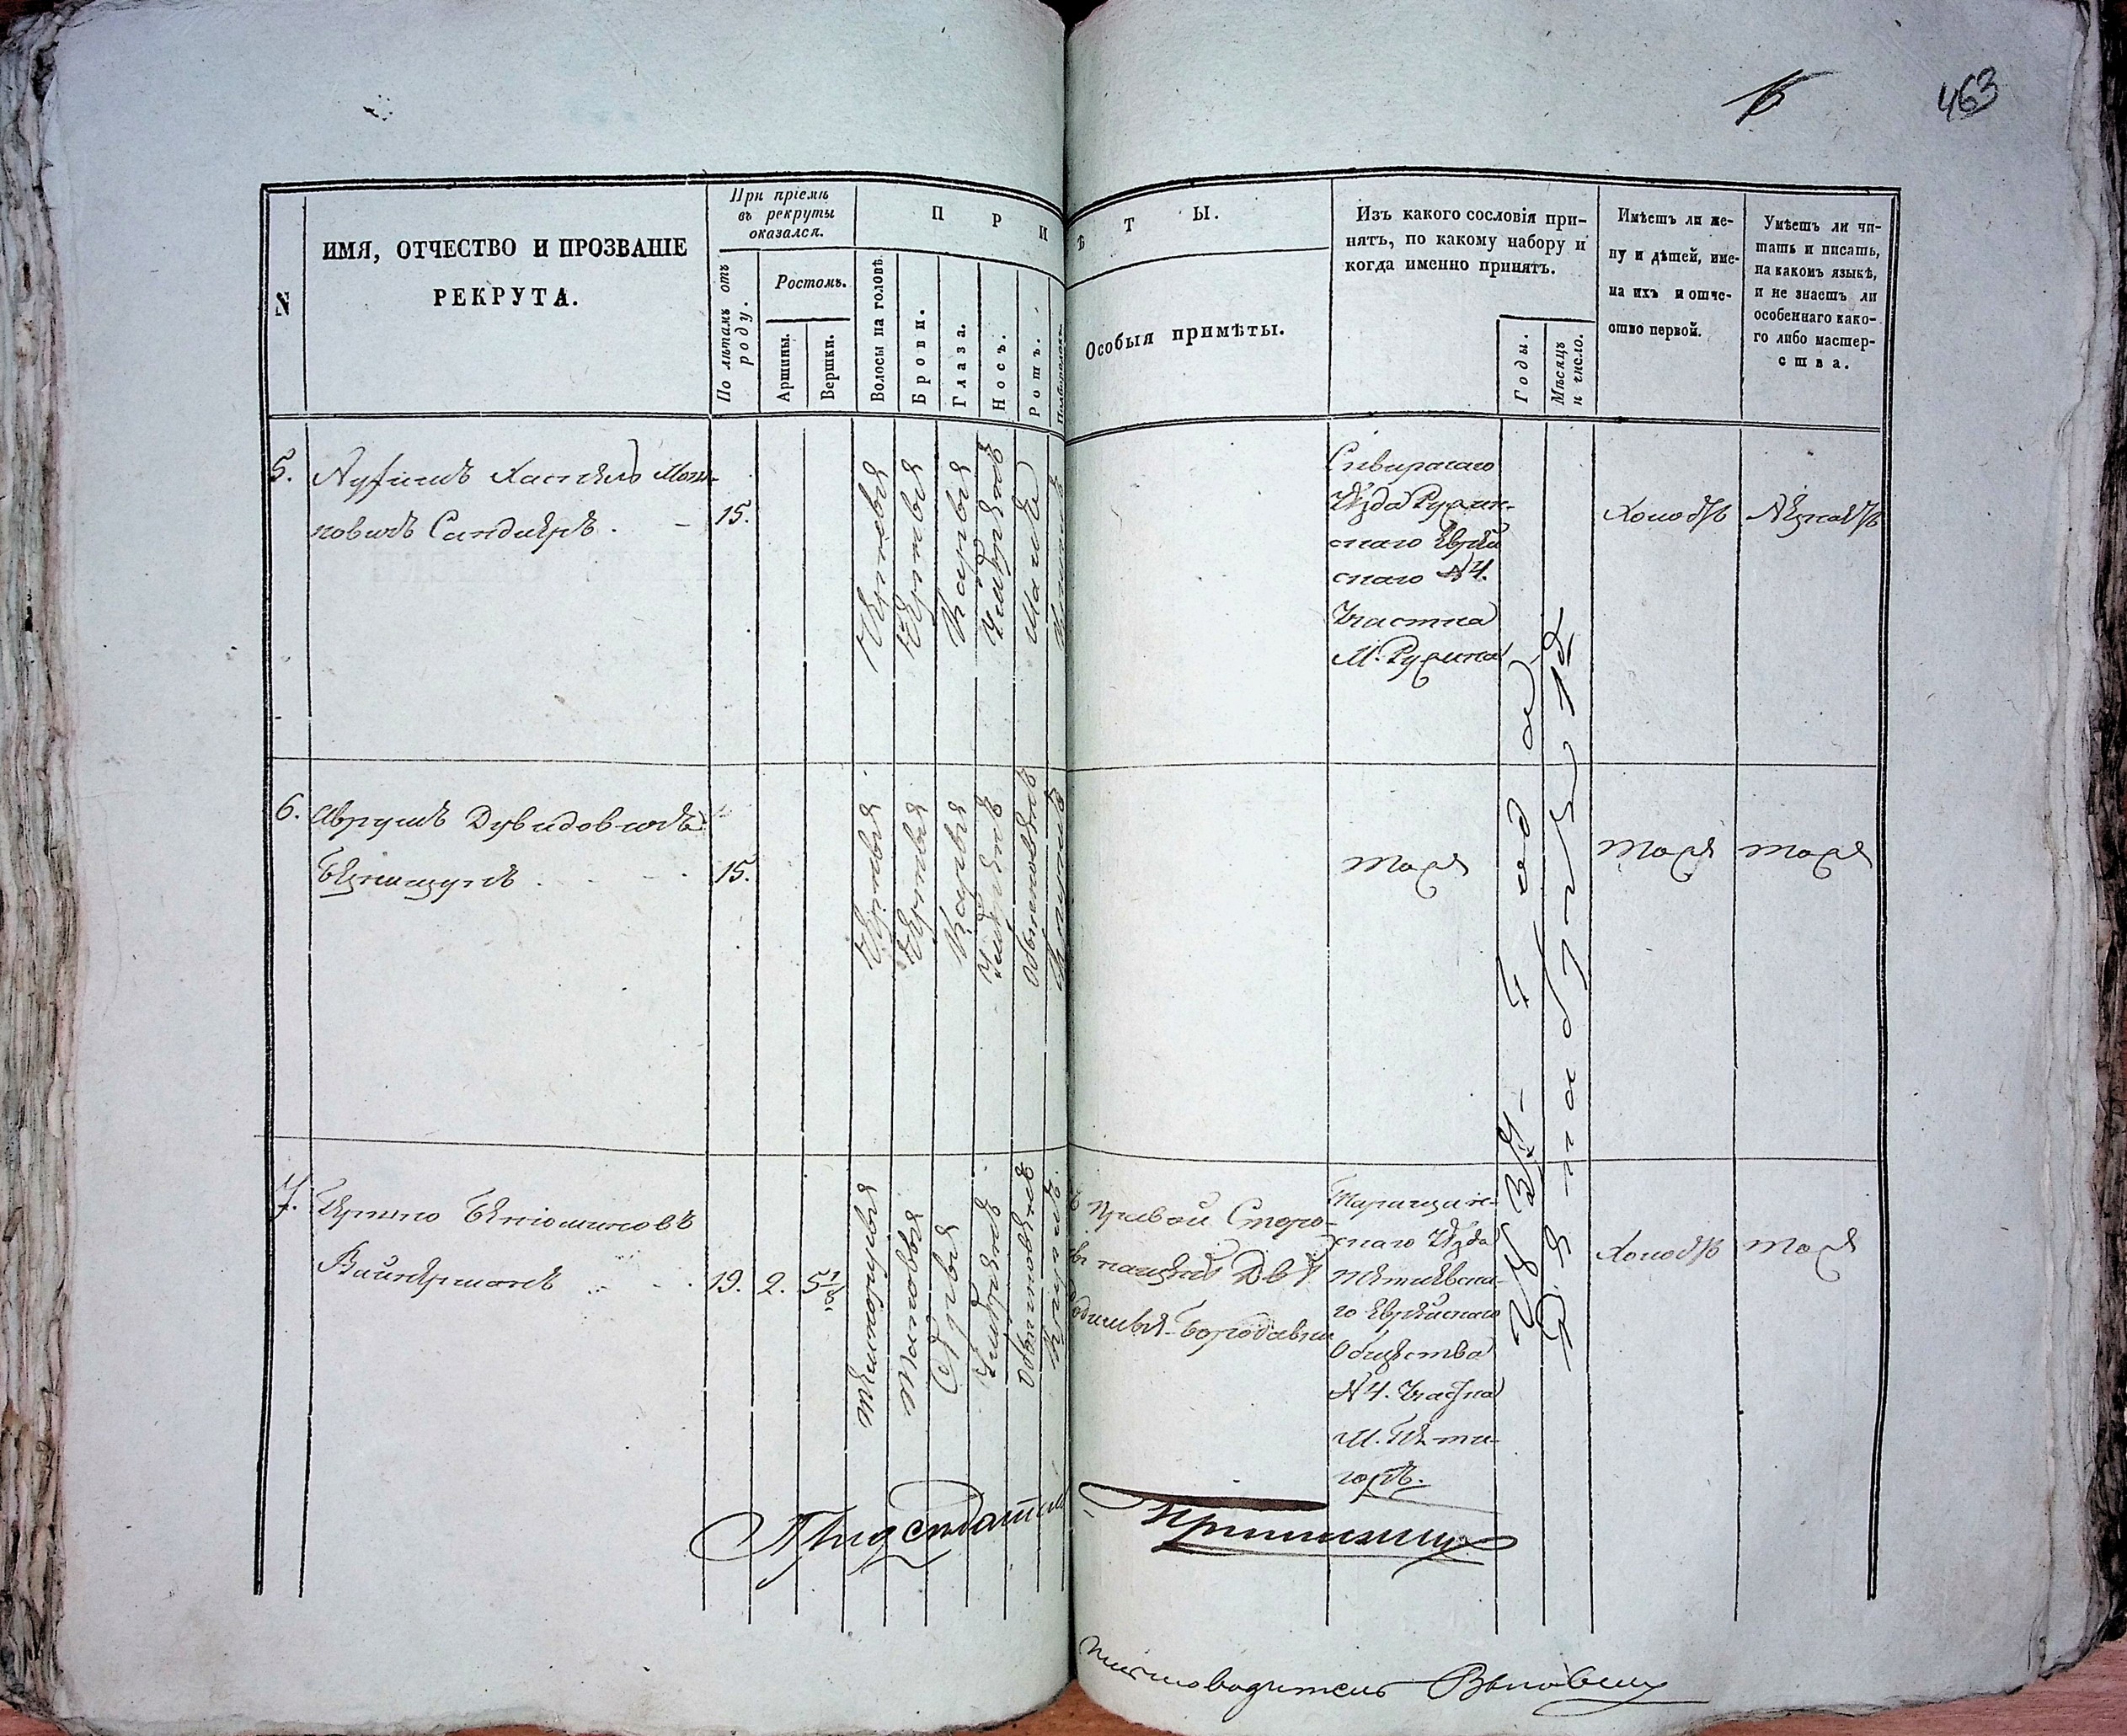 463
N
ИМЯ, ОТЧЕСТВО И ПРОЗВАНІЕ
РЕКРУТА.
При пріемѣ
въ рекруты
оказался.
По лѣтамъ отъ
роду.
Ростомъ.
Аршины.
Вершки.
П Р И
Волосы на головѣ.
Брови.
Глаза.
Носъ.
Ротъ.
Подбородокъ.
Ѣ Т Ы.
Особыя примѣты.
Изъ какого сословія при-
нятъ, по какому набору и
когда именно принятъ.
Годы.
Мѣсяцъ
и число.
Имѣетъ ли же-
ну и дѣтей, име-
на ихъ и отче-
ство первой.
Умѣетъ ли чи-
тать и писать,
на какомъ языкѣ,
и не знаетъ ли
особеннаго како-
го либо мастер-
ства.
5.
Хаскель Мош-
ковичъ Сандлеръ.
15.
Черныя
Черныя
Карыя
Умѣренъ
Малые
Сквирскаго
Уѣзда Ружин-
скаго Еврей
скаго №4.
Участка
М. Ружина
Холостъ
Незнаетъ
6.
Аврумъ Дувидовичъ
15.
Черныя
Черныя
Карыя
Умѣренъ
Обыкновенъ
Круглый
тоже
тоже
тоже
7.
Беніоминовъ
Вайнерманъ
19.
2.
5 1/8
Темнорусыя
Таковыя
Сѣрыя
Умѣренъ
Обыкновенъ
Круглъ.
Правой Сторо-
нѣ на щекѣ Двѣ
родимыя Бородавки
Таращан-
скаго Уѣзда
Тетіевска-
го Еврейскаго
Общества
№4. Участка
М. Пяти-
горъ.
Холостъ
тоже
года
Декабря 12
Предсѣдатель
Письмоводитель